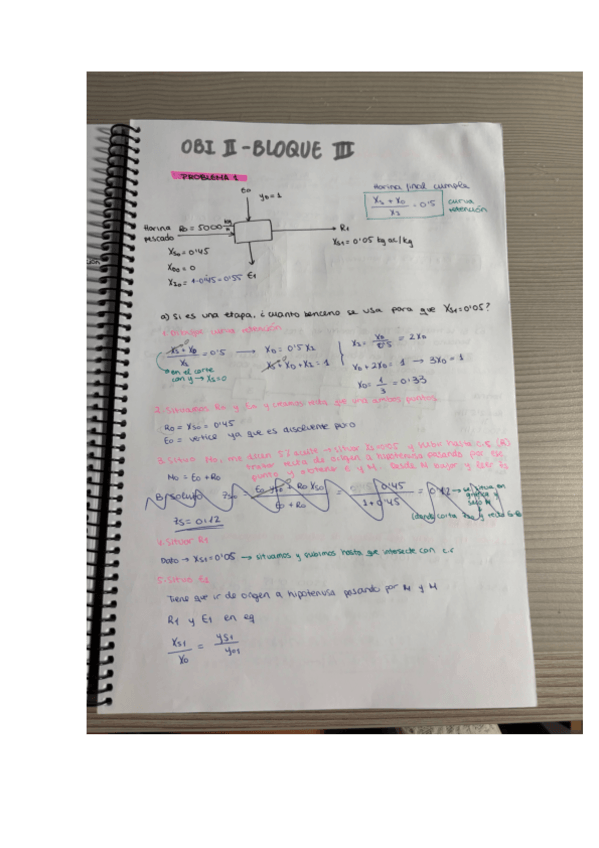 OBI II - BLOQUE III
PROBLEMA 1
E0
yD = 1
Harina final cumple
xS + xD / xI = 0'5 curva retención
Harina pescado R0 = 5000 kg/h
R1
xS1 = 0'05 kg ac/kg
xS0 = 0'45
xD0 = 0
xI0 = 1-0'45 = 0'55
E1
a) Si es una etapa, ¿cuanto benceno se usa para que xS1 = 0'05?
1. Dibujar curva retención
xS + xD / xI = 0'5 → xD = 0'5 xI
xS + xD + xI = 1
xI = xD / 0'5 = 2xD
xD + 2xD = 1 → 3xD = 1
xD = 1/3 = 0'33
en el corte con y → xS = 0
2. Situamos R0 y E0 y
recta que una ambos puntos.
R0 = xS0 = 0'45
E0 = vertice ya que es disolvente puro
3. Situo M0, me dicen 5% aceite → situar 0'05 y subo hasta c.r (R1)
trazar recta de origen a hipotenusa pasando por ese
punto y obtengo E y M. Desde M bajar y leer zS
M0 = E0 + R0
zS0 = E0 yS0 + R0 xS0 / E0 + R0 = 0'45 / 1 + 0'45 = 0'12 → se situa en gráfica y saco M
zS = 0'12
(donde corta zS0 y recta
4. Situar R1
Dato → xS1 = 0'05 → situamos y subimos hasta que intersecte con c.r
5. Situa E1
Tiene que ir de origen a hipotenusa pasando por R1 y M
R1 y E1 en eq
xS1 / xD = yS1 / yD1